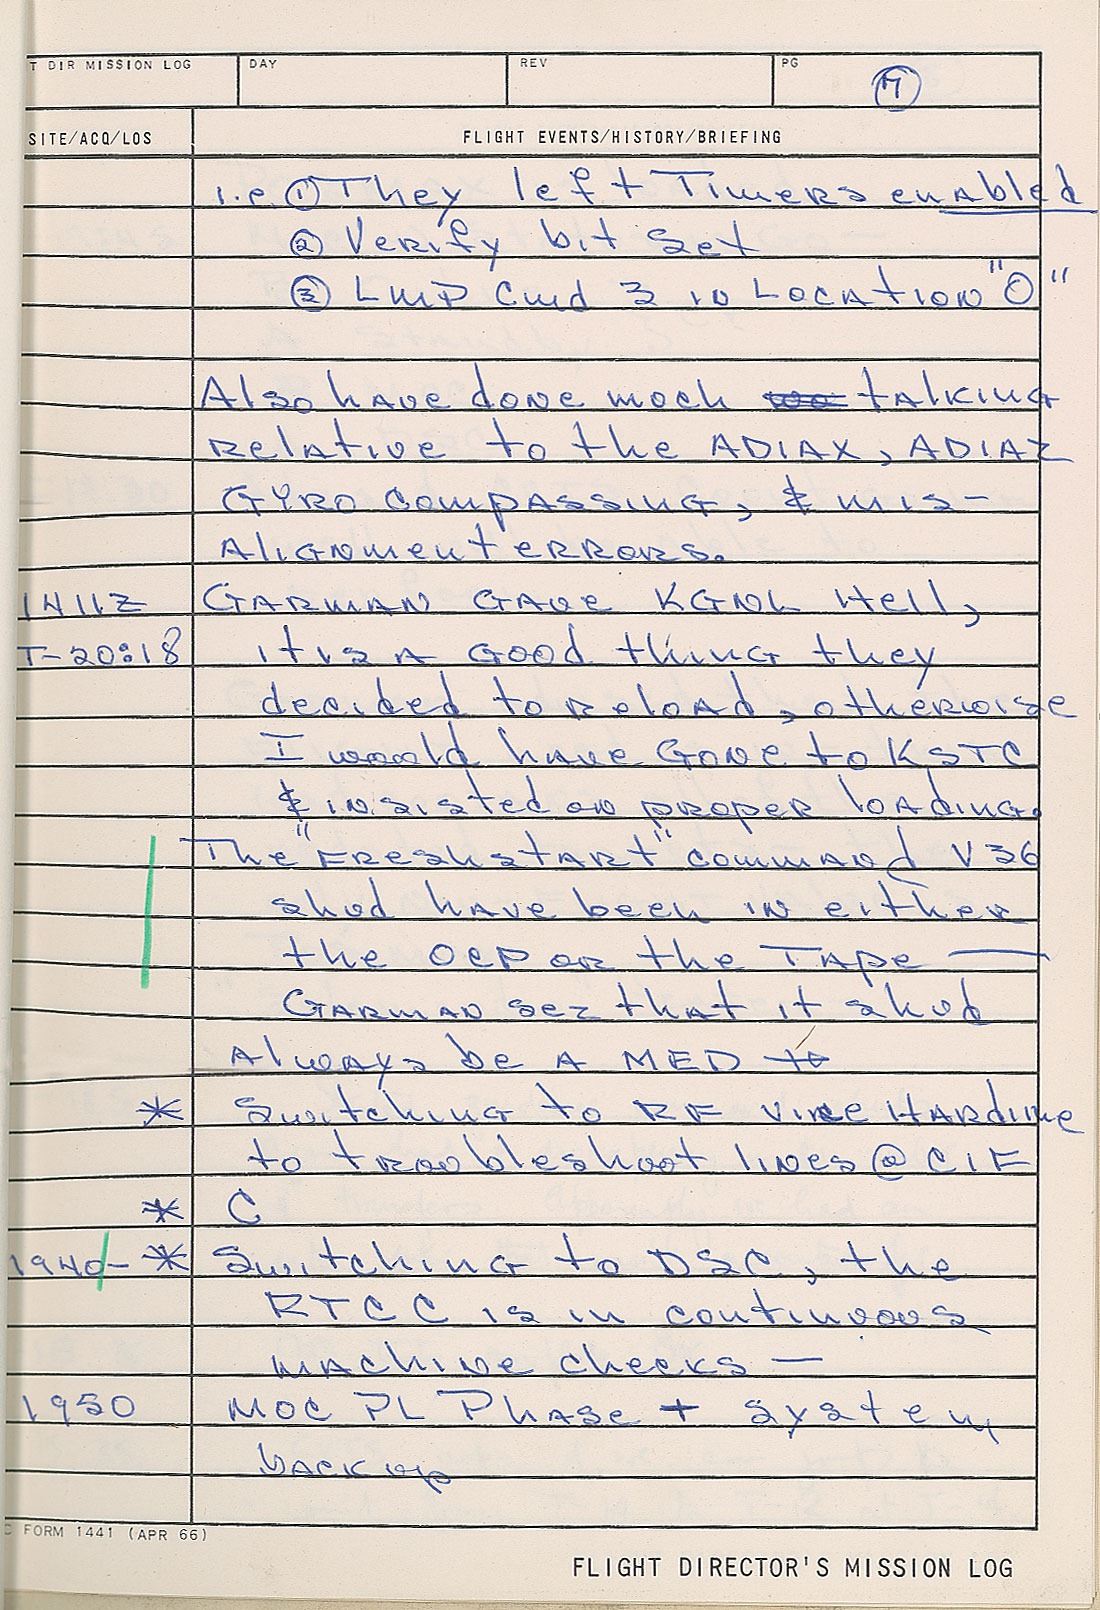 T DIR MISSION LOG DAY REV PG
SITE/ACQ/LOS FLIGHT EVENTS/HISTORY/BRIEFING
i.e. ① They left Timers enabled
② Verify bit set
③ LMP Cmd 3 in Location "0"
Also have done much talking
relative to the ADIAX, ADIAZ
GYRO compassing, & mis-
Alignment errors.
1411Z GARMAN GAVE KGNC Hell,
T-20:18 it is A Good thing they
decided to reload, otherwise
I would have Gone to KSTC
& insisted on proper loading.
The "FRESHSTART" command V36
shud have been in either
the OCP or the TApe —
GARMAN sez that it shud
Always be A MED
* Switching to RF vice HARdline
to troubleshoot lines @ CIF
* C
1940- * Switching to DSC, the
RTCC is in continuous
machine checks —
1950 MOC PL PHASE + system
backup
C FORM 1441 (APR 66)
FLIGHT DIRECTOR'S MISSION LOG